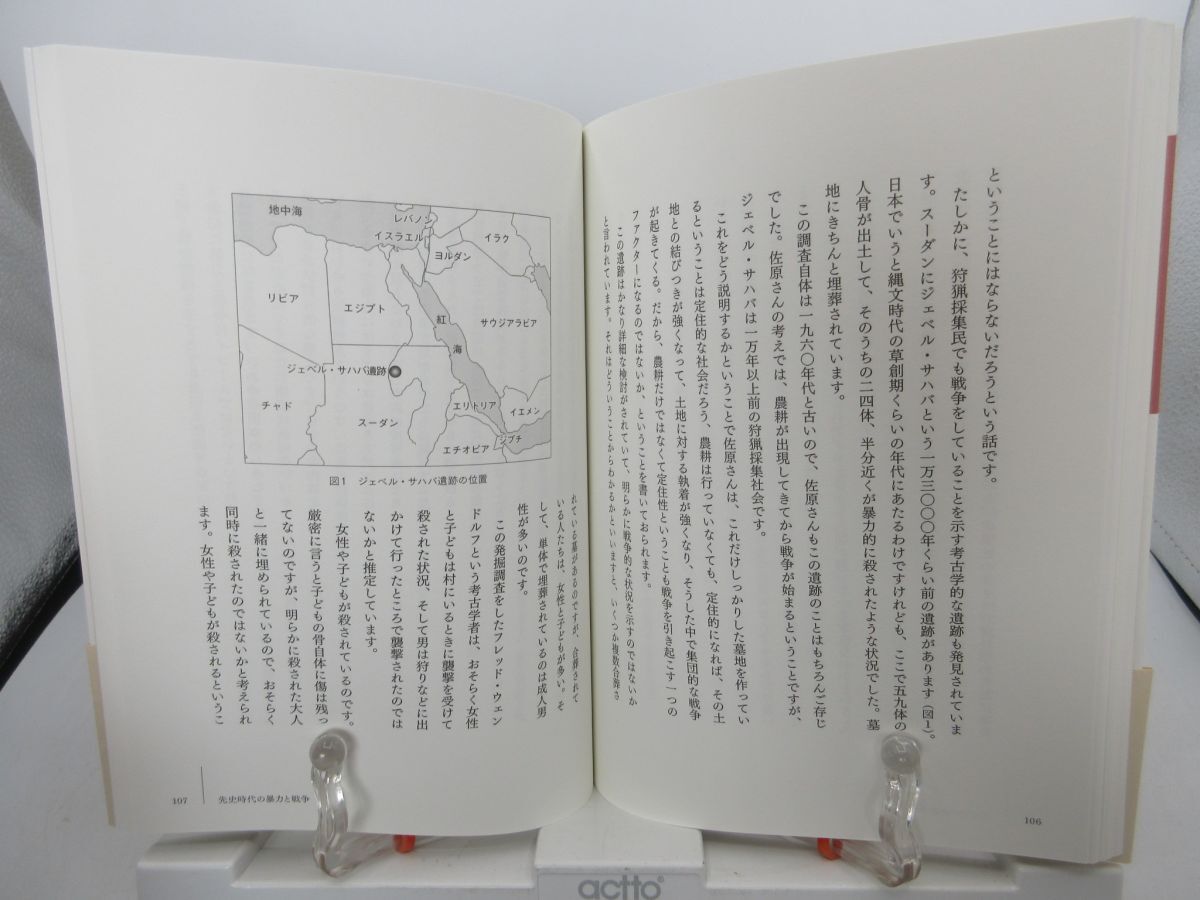 ということにはならないだろうという話です。
たしかに、狩猟採集民でも戦争をしていることを示す考古学的な遺跡も発見されていま
す。スーダンにジェベル・サハバという一万三〇〇〇年くらい前の遺跡があります(図1)。
日本でいうと縄文時代の草創期くらいの年代にあたるわけですけれども、ここで五九体の
人骨が出土して、そのうちの二四体、半分近くが暴力的に殺されたような状況でした。墓
地にきちんと埋葬されています。
この調査自体は一九六〇年代と古いので、佐原さんもこの遺跡のことはもちろんご存じ
でした。佐原さんの考えでは、農耕が出現してきてから戦争が始まるということですが、
ジェベル・サハバは一万年以上前の狩猟採集社会です。
これをどう説明するかということで佐原さんは、これだけしっかりした墓地を作ってい
るということは定住的な社会だろう、農耕は行っていなくても、定住的になれば、その土
地との結びつきが強くなって、土地に対する執着が強くなり、そうした中で集団的な戦争
が起きてくる。だから、農耕だけではなくて定住性ということも戦争を引き起こす一つの
ファクターになるのではないか、ということを書いておられます。
この遺跡はかなり詳細な検討がされていて、明らかに戦争的な状況を示すのではないか
と言われています。それはどういうことからわかるかといいますと、いくつか複数合葬さ
106
地中海
レバノン
イスラエル
イラク
ヨルダン
リビア
エジプト
紅
海
サウジアラビア
ジェベル・サハバ遺跡
チャド
スーダン
エリトリア
イエメン
ジブチ
エチオピア
図1 ジェベル・サハバ遺跡の位置
れている墓があるのですが、合葬されて
いる人たちは、女性と子どもが多い。そ
して、単体で埋葬されているのは成人男
性が多いのです。
この発掘調査をしたフレッド・ウェン
ドルフという考古学者は、おそらく女性
と子どもは村にいるときに襲撃を受けて
殺された状況、そして男は狩りなどに出
かけて行ったところで襲撃されたのでは
ないかと推定しています。
女性や子どもが殺されているのです。
厳密に言うと子どもの骨自体に傷は残っ
てないのですが、明らかに殺された大人
と一緒に埋められているので、おそらく
同時に殺されたのではないかと考えられ
ます。女性や子どもが殺されるというこ
107 先史時代の暴力と戦争
actto